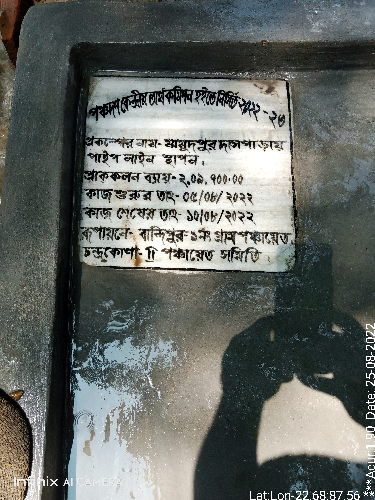 পঞ্চদশ কেন্দ্রীয় অর্থ কমিশন হইতে নির্মিত ২০২২-২৩
প্রকল্পের নাম- মামুদপুর দাসপাড়ায়
পাইপ লাইন স্থাপন.
প্রাককলন ব্যয়- ২,০৯,৭০০.০০
কাজ শুরুর তাং- ০৫/০৮/২০২২
কাজ শেষের তাং- ১০/০৮/২০২২
রূপায়নে- বান্দিপুর-১নং গ্রাম পঞ্চায়েত.
চন্দ্রকোণা-II পঞ্চায়েত সমিতি
Infinix AI CAMERA
Lat:Lon-22.68:87.56
***Acur:1.90 Date: 25-08-2022